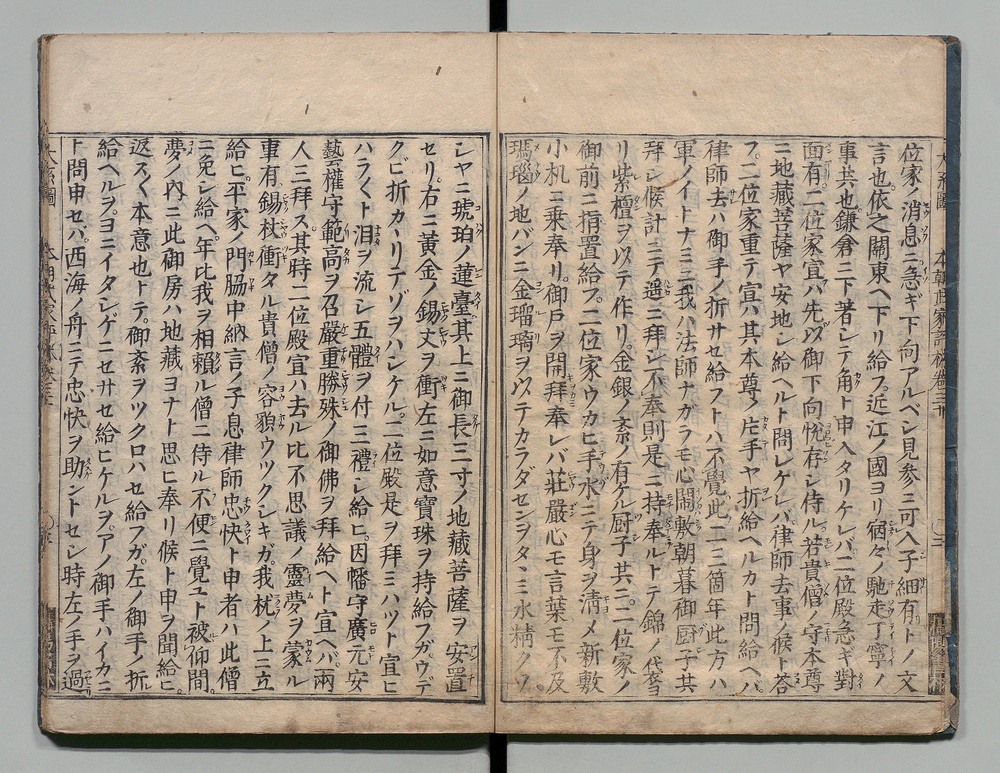 位家ノ消息ニ急ギ下向アルベシ見參ニ可入子細有トノ文
言也依之關東ヘ下リ給フ近江ノ國ヨリ宿々ノ馳走丁寧ノ
事共也鎌倉ニ下著シテ角ト申入タリケレバ二位殿急ギ對
面有二位家宣ハ先以御下向悅存シ侍ル若貴僧ノ守本尊
ニ地藏菩薩ヤ安地シ給ヘルト問レケレバ律師去事ノ候ト荅
フ二位家重テ宣ハ其本尊ノ片手ヤ折給ヘルカト問給ヘバ
律師去ハ御手ノ折サセ給フトハ不覺此二三箇年此方ハ
軍ノイトナミ我ハ法師ナガラモ心閙敷朝暮御厨子共
拜シ候計ニテ遥ニ拜シ不奉則是ニ持奉ルトテ錦ノ袋ヨ
リ紫檀ヲ以テ作リ金銀ノ紊ノ有ケル厨子共ニ二位家ノ
御前ニ指置給フ二位家ウカヒ手水ニテ身ヲ淸メ新敷
小机ニ乗奉リ御戸ヲ開拜奉レバ莊嚴心モ言葉モ不及
瑪瑙ノ地バンニ金瑠璃ヲ以テカラダセンヲタヽミ水精クノ
シヤニ琥珀ノ蓮臺其上ニ御長三寸ノ地藏菩薩ヲ安置
セリ右ニ黃金ノ錫丈ヲ衝左ニ如意寶珠ヲ持給フガウデ
クビ折カヽリテゾヲハシケル二位殿是ヲ拜ミハツト宣ヒ
ハラ〱ト泪ヲ流シ五體ヲ付三禮シ給ヒ因幡守廣元安
藝權守範高ヲ召嚴重勝殊ノ御佛ヲ拜給ヘト宣ヘバ兩
人三拜ス其時二位殿宣ハ去ル比不思議ノ靈夢ヲ蒙ル
事有錫杖衝タル貴僧ノ容貌ウツクシキガ我枕ノ上ニ立
給ヒ平家ノ門脇中納言ノ子息律師忠快ト申者ハ此僧
ニ免シ給ヘ年比我ヲ相賴ル僧ニ侍ル不便ニ覺ユト被仰間
夢ノ內ニ此御房ハ地藏ヨナト思ヒ奉リ候ト申ヲ聞給ヒ
返ス〱本意也トテ御紊ヲツクロハセ給フガ左ノ御手ノ折
給ヘルヲヨニイタシゲニセサセ給ヒケルヲアノ御手ハイカニ
ト問申セバ西海ノ舟ニテ忠快ヲ助ントセシ時左ノ手ヲ過